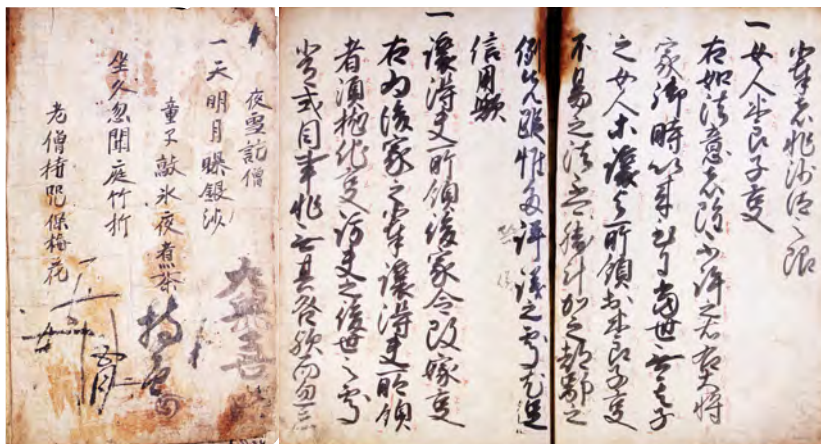 輩者非沙汰之限
一女人養子事
右如法意者雖不許之右大将
家御時以来至于當世無其子
之女人等讓与所領於養子事
不易之法不可勝計加之都鄙之
例先蹤惟多評議之處尤足
信用歟
一讓得夫所領後家令改嫁事
右為後家之輩讓得夫所領
者須抛他事訪夫之後世之處
背式目事非無其咎歟而忽忘
夜雪訪僧
一天明月曝銀沙
童子敲氷夜煮茶
坐久忽聞庭竹折
老僧持咒保梅花
持主